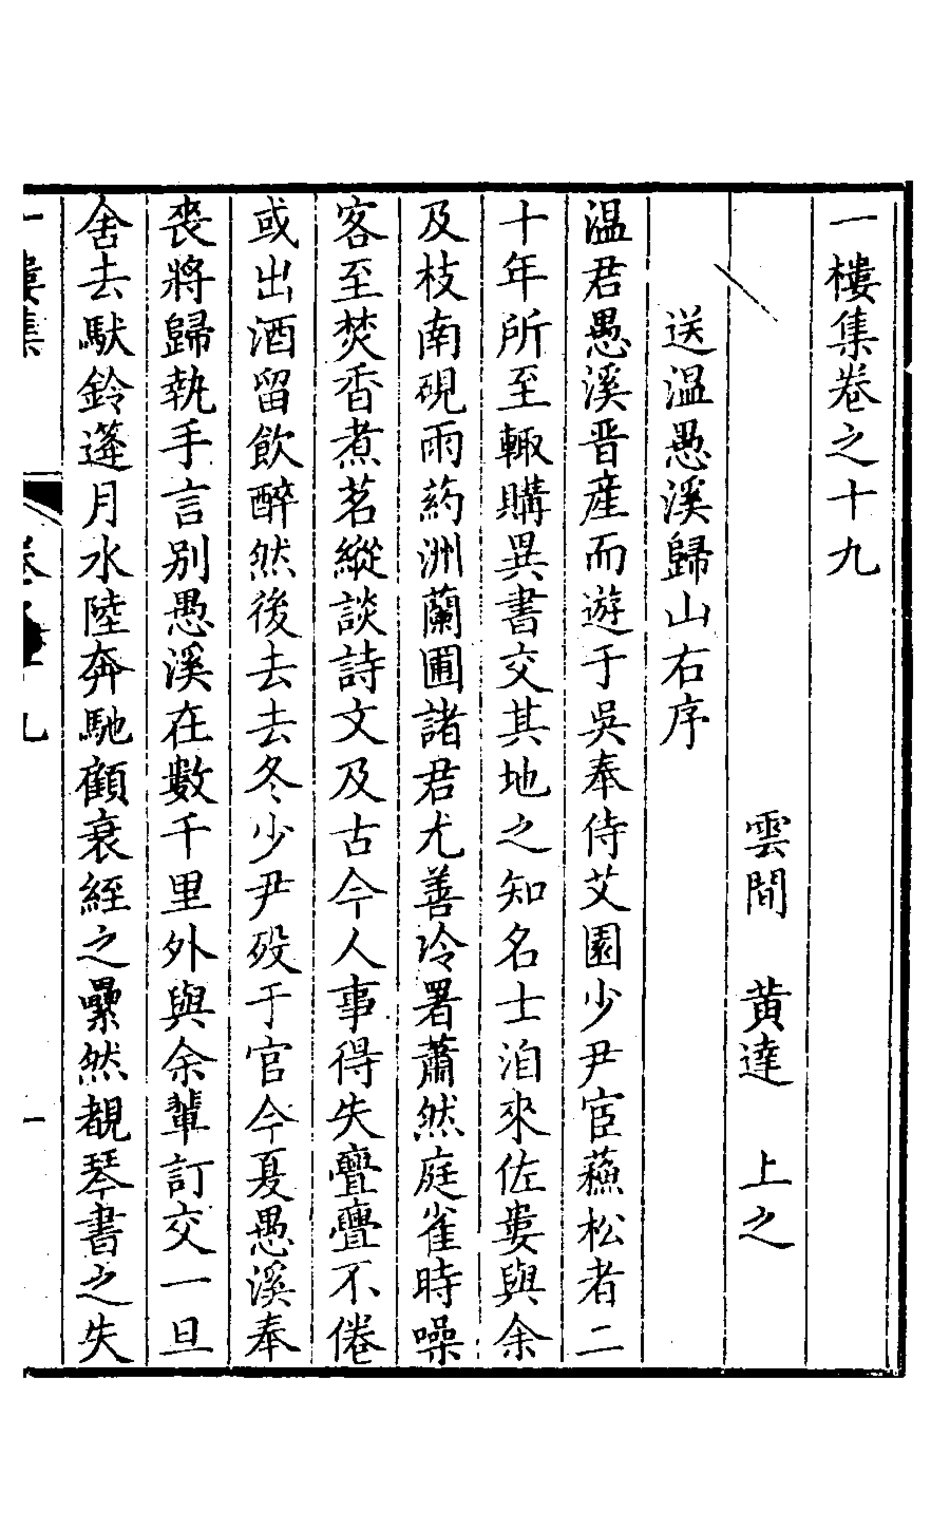 一樓集卷之十九
雲間　黄達　上之
送温愚溪歸山右序
温君愚溪晋產而遊于吳奉侍艾園少尹宦蘓松者二
十年所至輙購異書交其地之知名士洎來佐婁與余
及枝南硯雨葯洲蘭圃諸君尤善冷署蕭然庭雀時噪
客至焚香煮茗縱談詩文及古今人事得失亹亹不倦
或出酒留飲醉然後去去冬少尹殁于官今夏愚溪奉
喪將歸執手言别愚溪在數千里外與余輩訂交一旦
舍去馱鈴篷月水陸奔馳顧衰絰之纍然覩琴書之失
一樓集　卷之十九　一